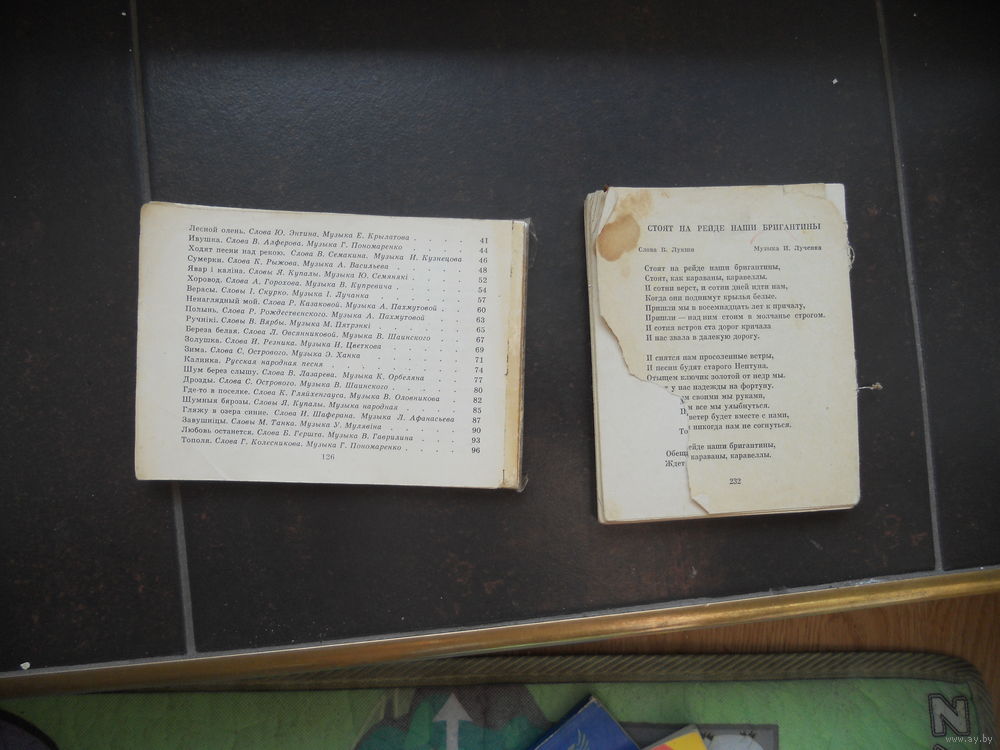 Лесной олень. Слова Ю. Энтина. Музыка Е. Крылатова . . . . 41
Ивушка. Слова В. Алферова. Музыка Г. Пономаренко . . . . 44
Ходят песни над рекою. Слова В. Семакина. Музыка И. Кузнецова 46
Сумерки. Слова К. Рыжова. Музыка А. Васильева . . . . 48
Явар і каліна. Словы Я. Купалы. Музыка Ю. Семянякі . . . . 52
Хоровод. Слова А. Горохова. Музыка В. Купревича . . . . 54
Верасы. Словы І. Скурко. Музыка І. Лучанка . . . . 57
Ненаглядный мой. Слова Р. Казаковой. Музыка А. Пахмутовой . . 60
Полынь. Слова Р. Рождественского. Музыка А. Пахмутовой . . 63
Ручнікі. Словы В. Вярбы. Музыка М. Пятрэнкі . . . . 65
Береза белая. Слова Л. Овсянниковой. Музыка В. Шаинского . . 67
Золушка. Слова И. Резника. Музыка И. Цветкова . . . . 69
Зима. Слова С. Острового. Музыка Э. Ханка . . . . 71
Калинка. Русская народная песня . . . . 74
Шум берез слышу. Слова В. Лазарева. Музыка К. Орбеляна . . 77
Дрозды. Слова С. Острового. Музыка В. Шаинского . . . . 80
Где-то в поселке. Слова К. Гляйхенгауса. Музыка В. Оловникова . 82
Шумныя бярозы. Словы Я. Купалы. Музыка народная . . . . 85
Гляжу в озера синие. Слова И. Шаферана. Музыка Л. Афанасьева 87
Завушніцы. Словы М. Танка. Музыка У. Мулявіна . . . . 90
Любовь останется. Слова Б. Гершта. Музыка В. Гаврилина . . . 93
Тополя. Слова Г. Колесникова. Музыка Г. Пономаренко . . . . 96
126
СТОЯТ НА РЕЙДЕ НАШИ БРИГАНТИНЫ
Слова В. Лукши Музыка И. Лученка
Стоят на рейде наши бригантины,
Стоят, как караваны, каравеллы.
И сотни верст, и сотни дней идти нам,
Когда они поднимут крылья белые.
Пришли мы в восемнадцать лет к причалу,
Пришли — над ним стоим в молчанье строгом.
И сотня встров ста дорог кричала
И нас звала в далекую дорогу.
И снятся нам просоленные ветры,
И песни будят старого Нептуна,
Отыщем ключик золотой от недр мы.
у нас надежды на фортуну.
своими мы руками,
все мы улыбнуться.
ветер будет вместе с нами,
То и никогда нам не согнуться.
рейде наши бригантины,
Обещ караваны, каравеллы.
Ждет
232
N
www.ay.by